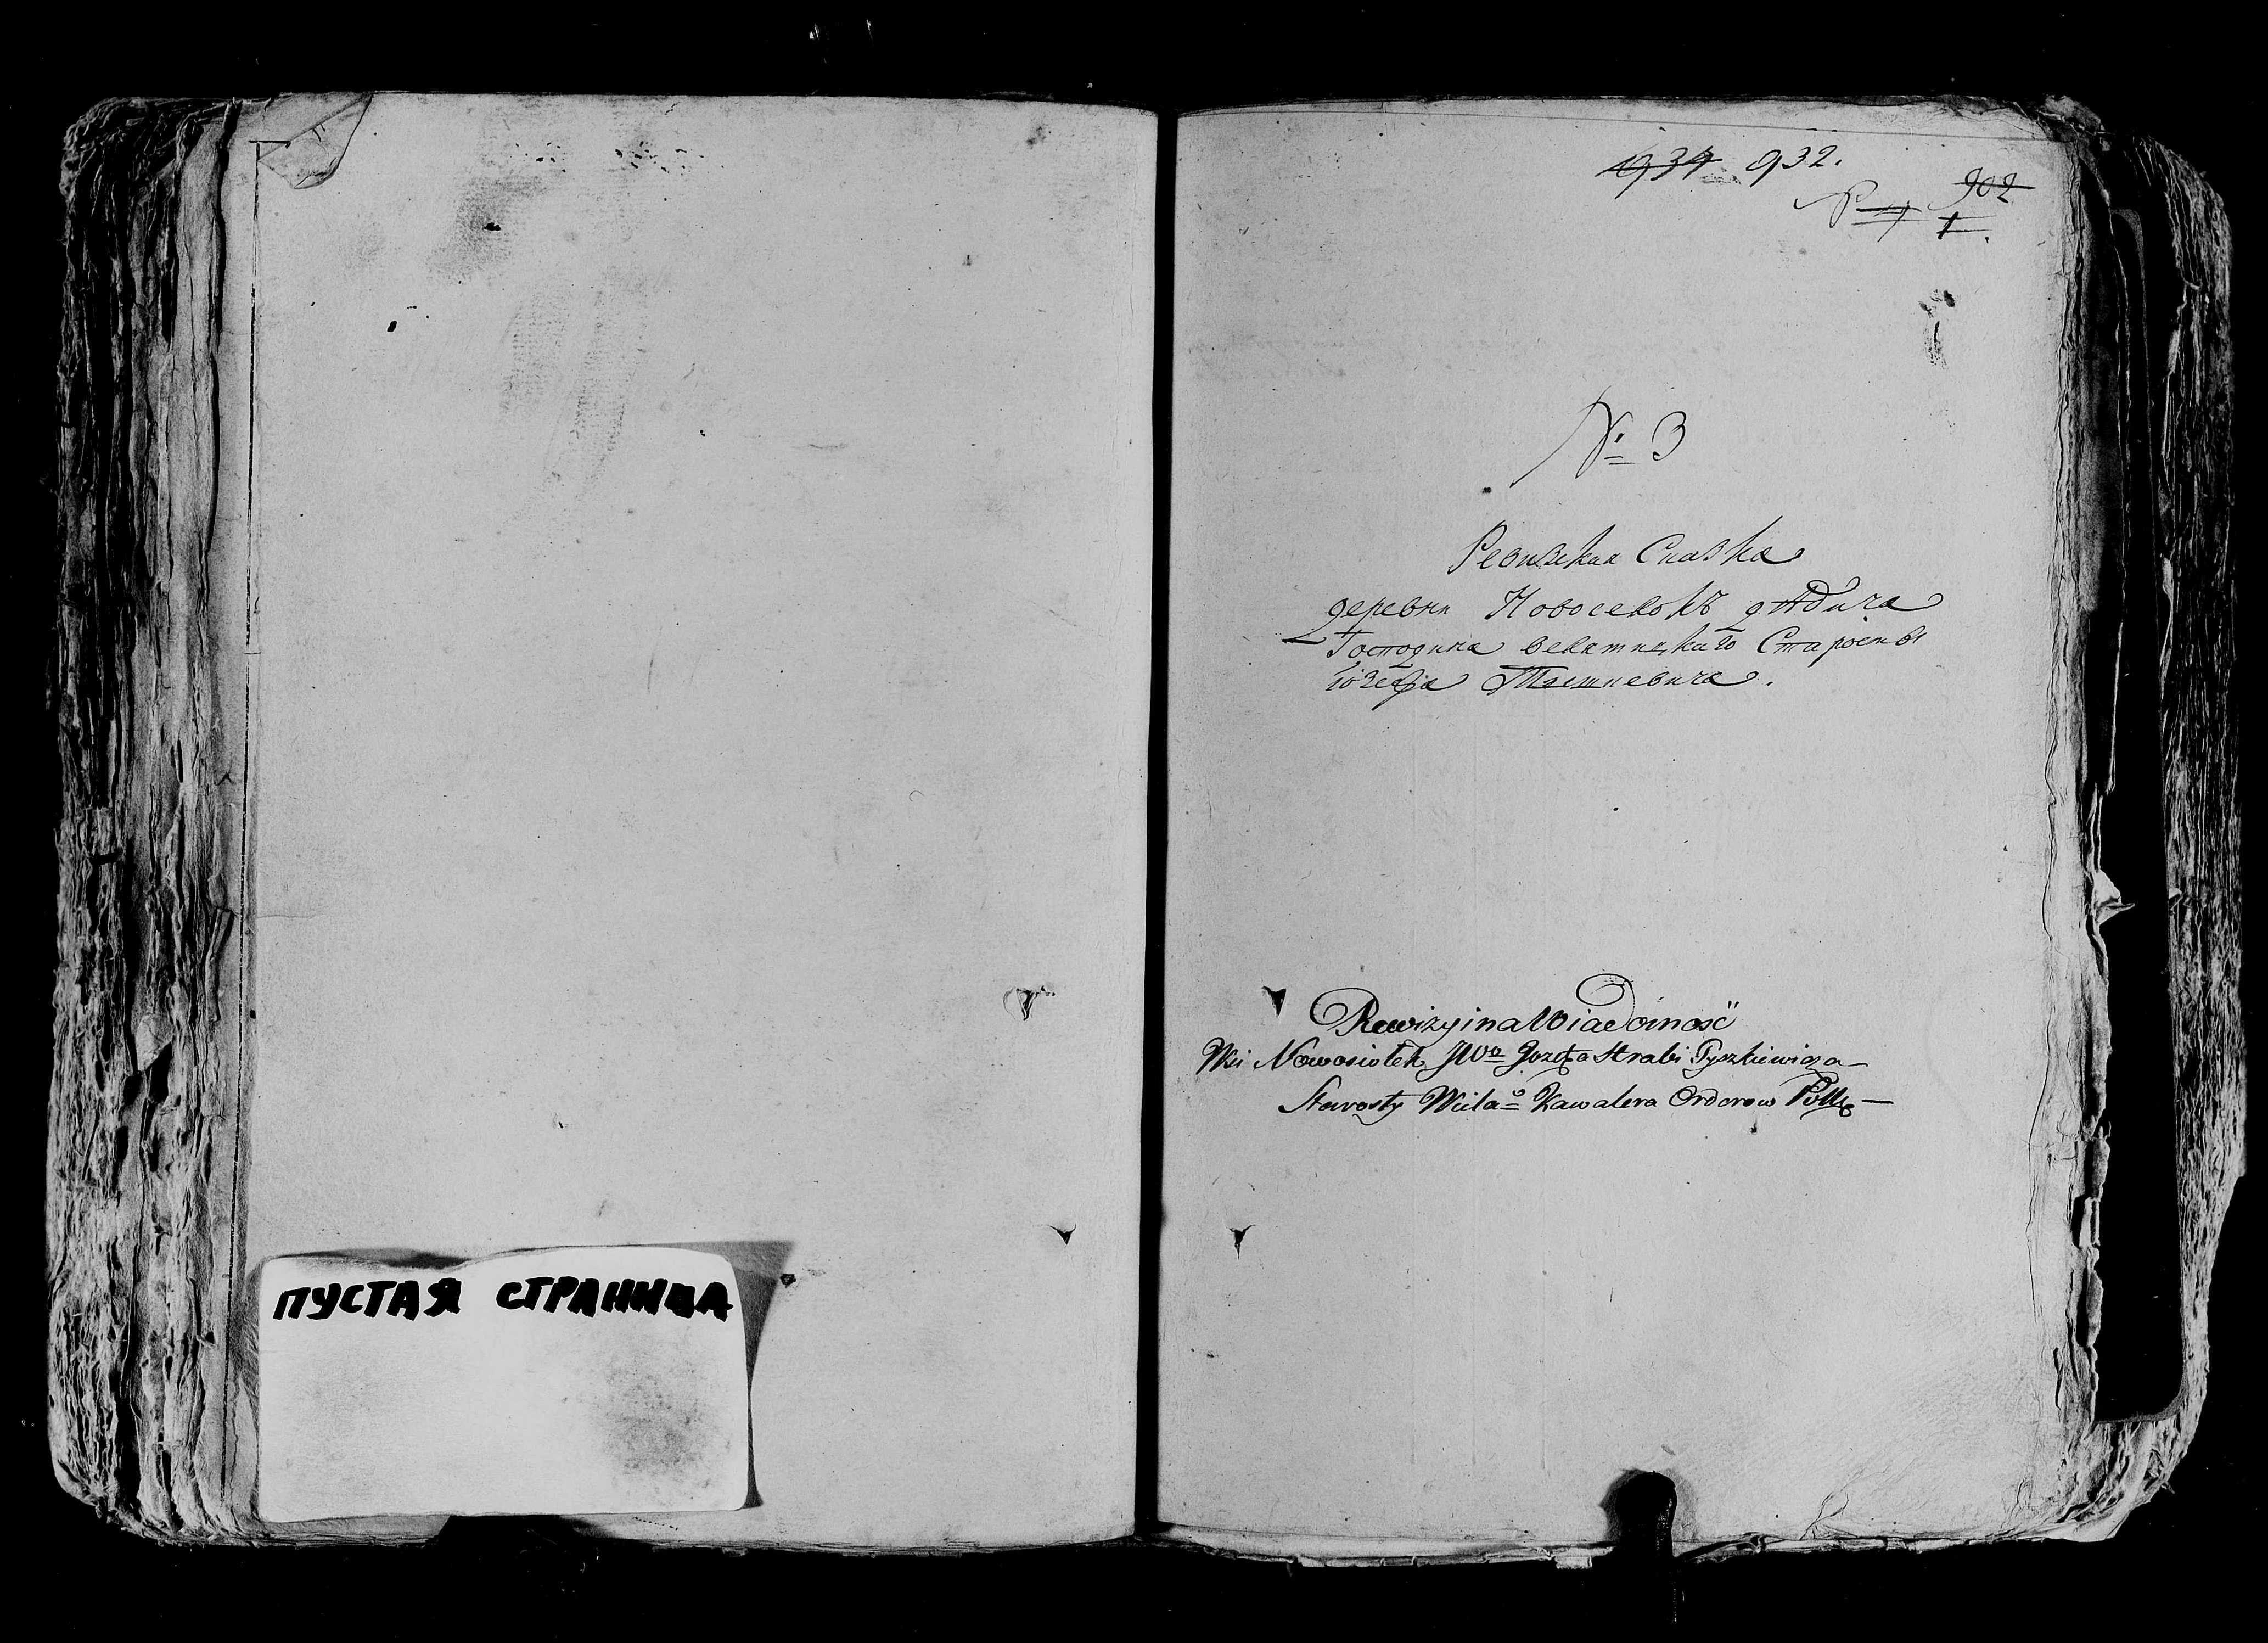 ПУСТАЯ СТРАНИЦА
934 932.
902
1.
№ 3
Ревизская Сказка
деревни Новоселокъ дѣдича
Господина велятицкаго Старосты
Іозефа Тышкевича.
Rewizyina Wiadomość
Wsi Nowosiołek JWo Jozefa Hrabi Tyszkiewicza
Starosty Wiela° Kawalera Orderow Pollch